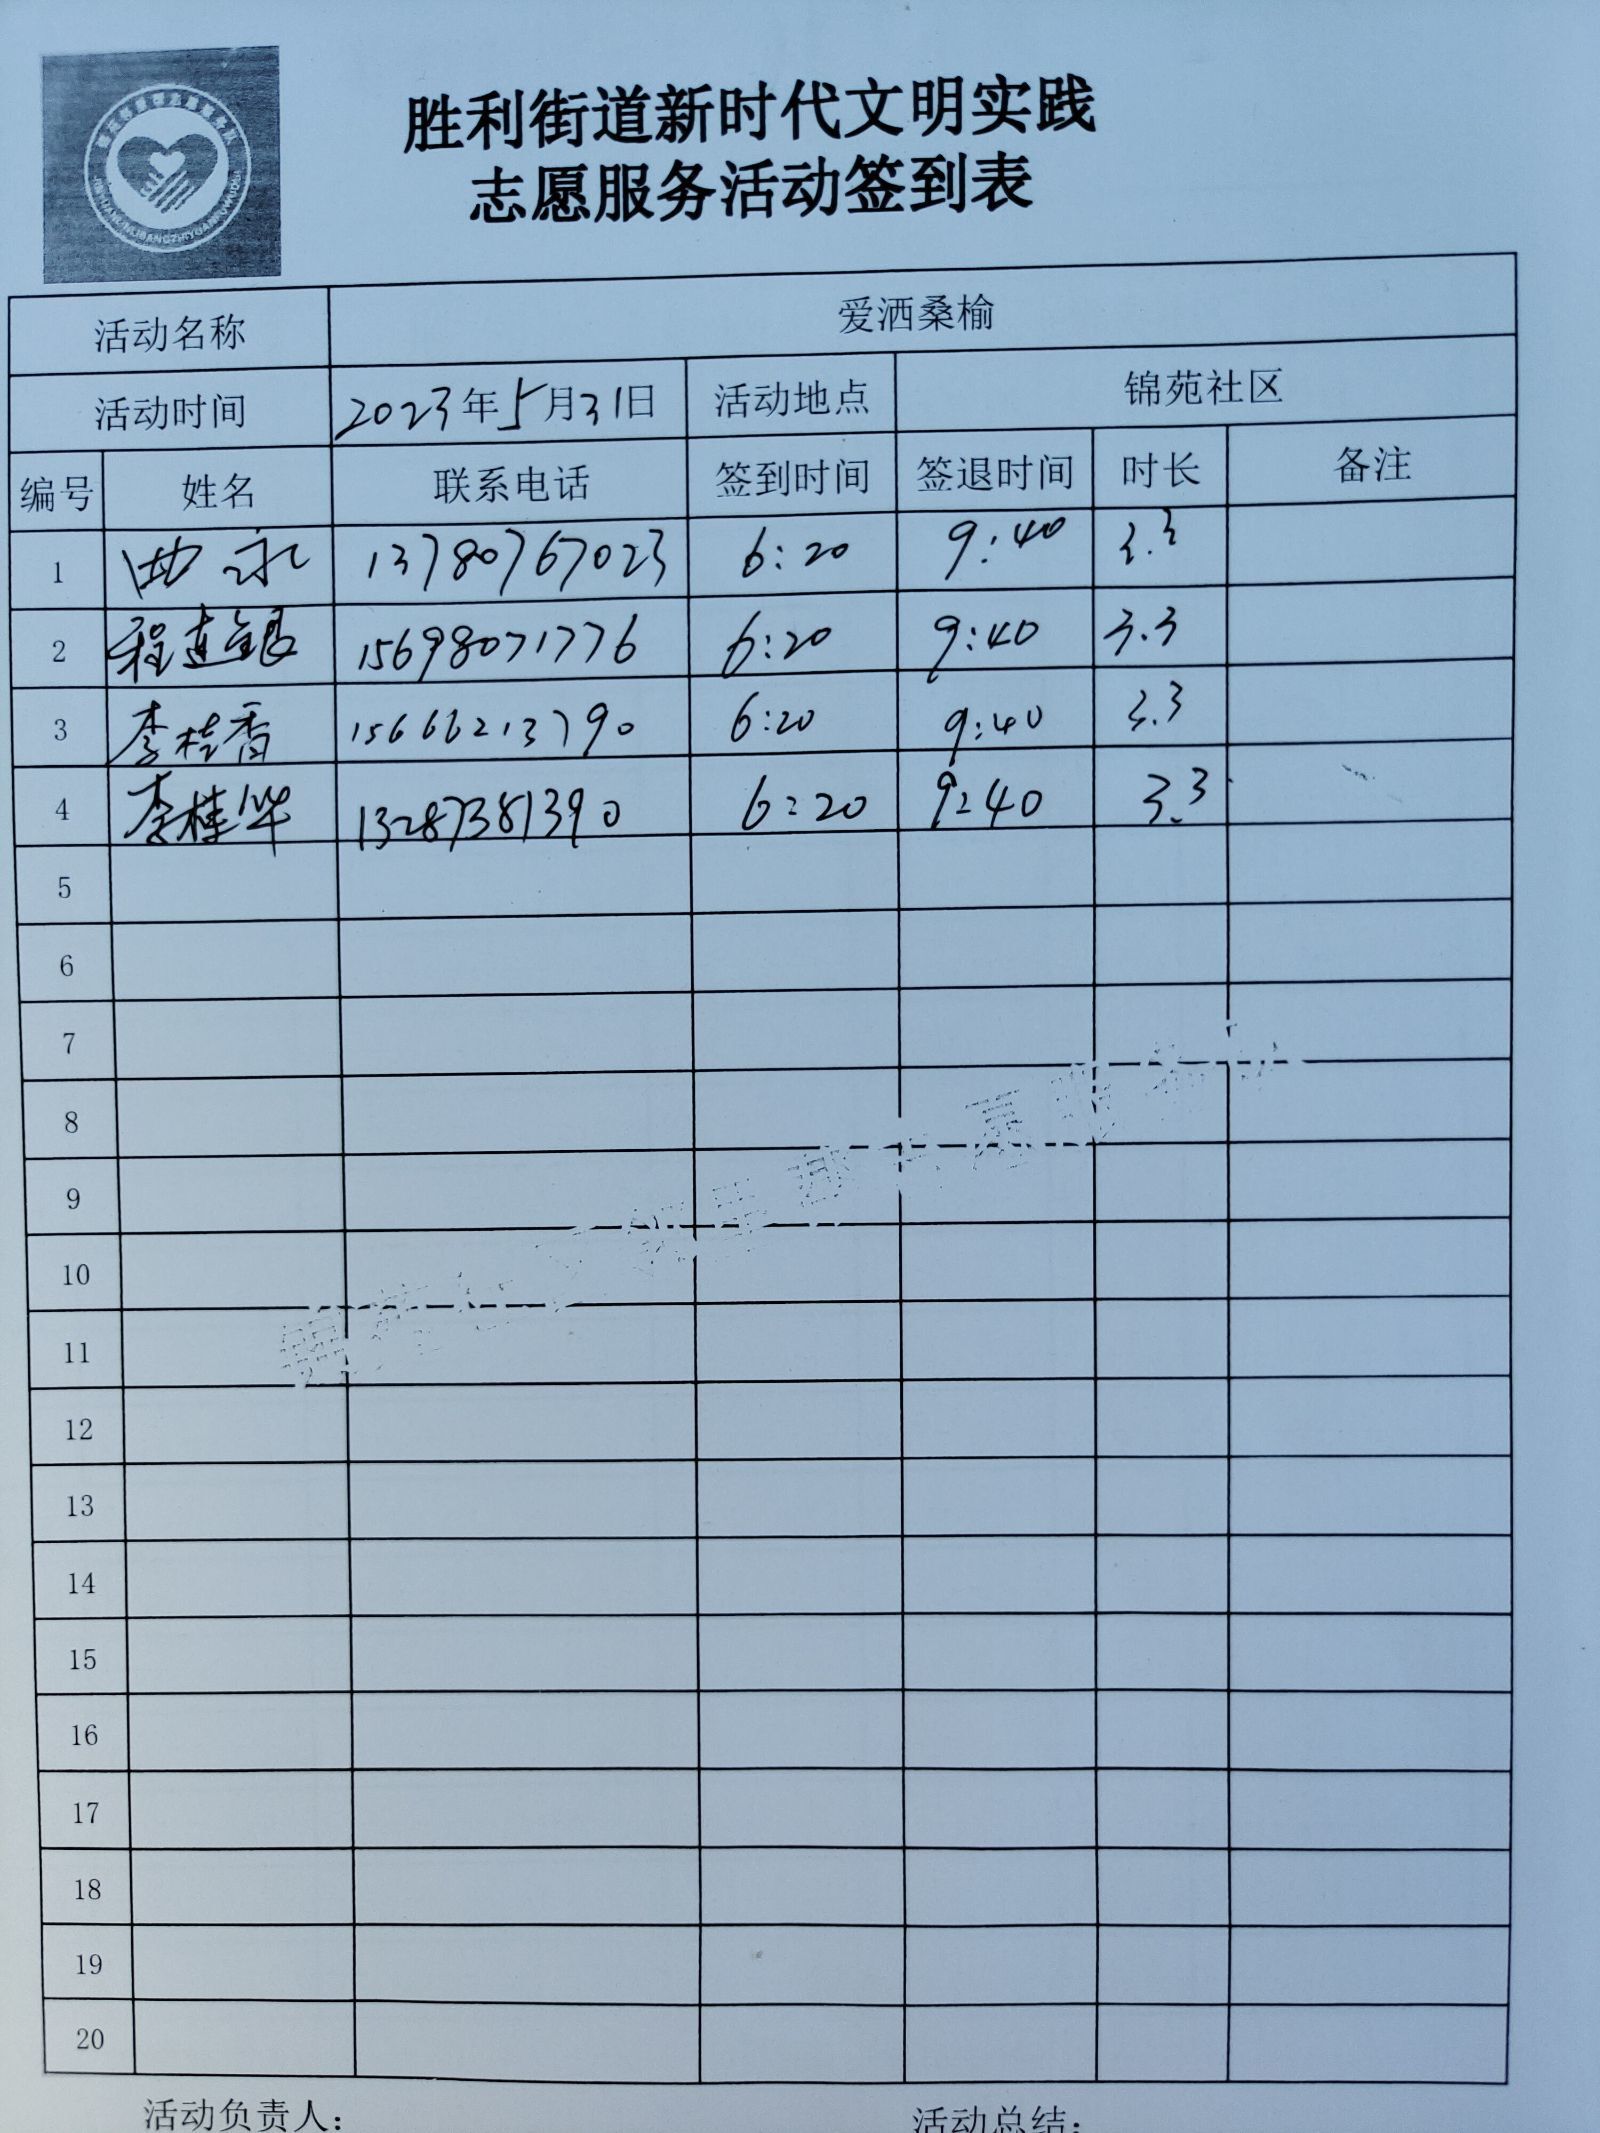 胜利街道新时代文明实践
志愿服务活动签到表
活动名称 爱洒桑榆
活动时间 2023年5月31日 活动地点 锦苑社区
编号 姓名 联系电话 签到时间 签退时间 时长 备注
1 曲永 13780767023 6:20 9:40 3.3
2 程连银 15698071776 6:20 9:40 3.3
3 李桂香 15666213790 6:20 9:40 3.3
4 李桂华 13287381390 6:20 9:40 3.3
5
6
7
8
9
10
11
12
13
14
15
16
17
18
19
20
活动负责人： 活动总结：